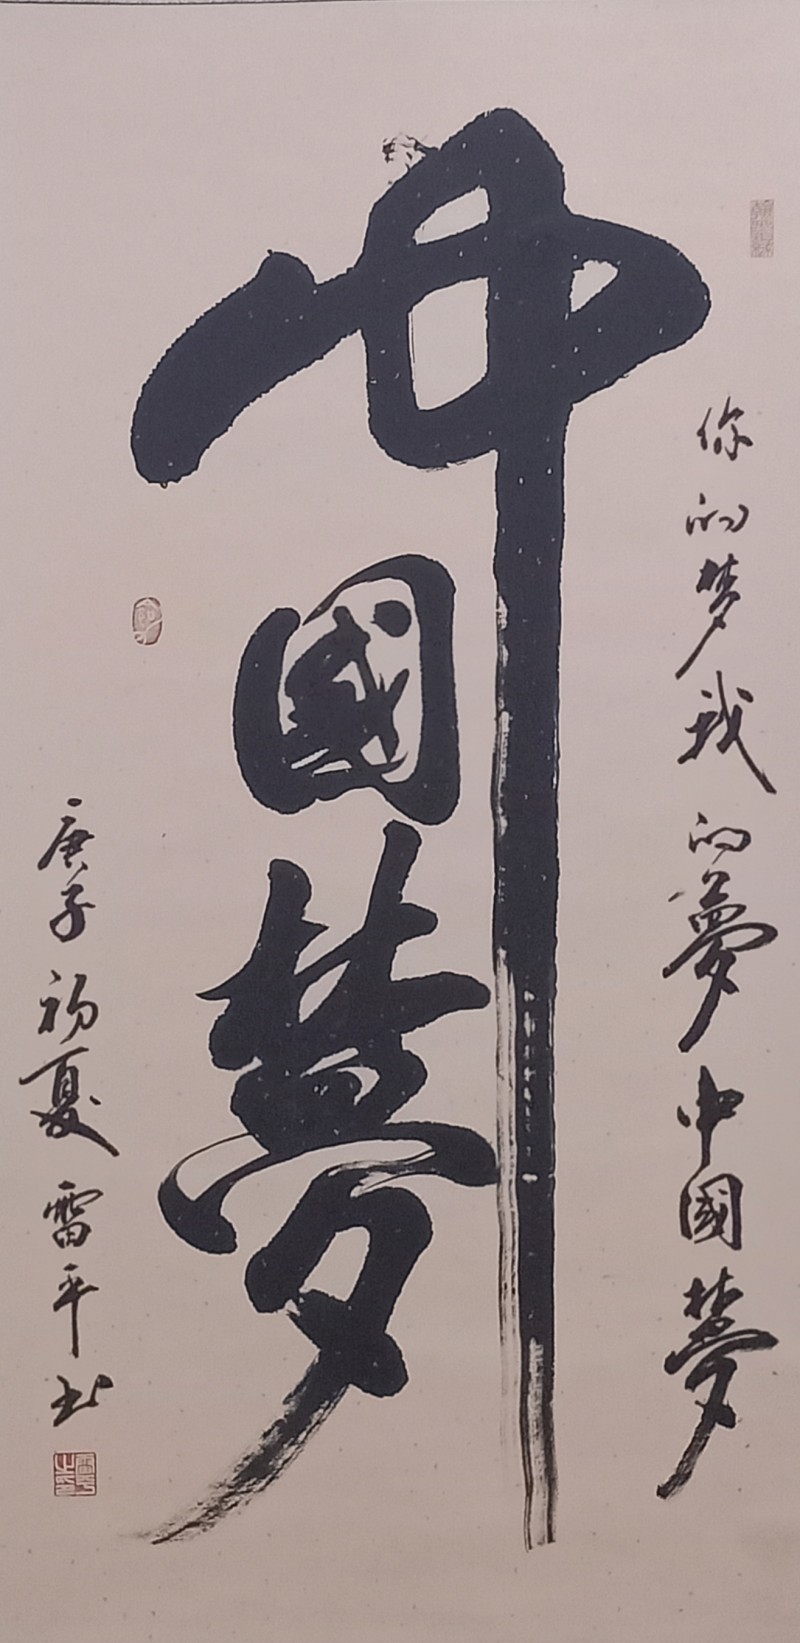 你的梦我的夢中國夢
中國夢
庚子初夏雷平书